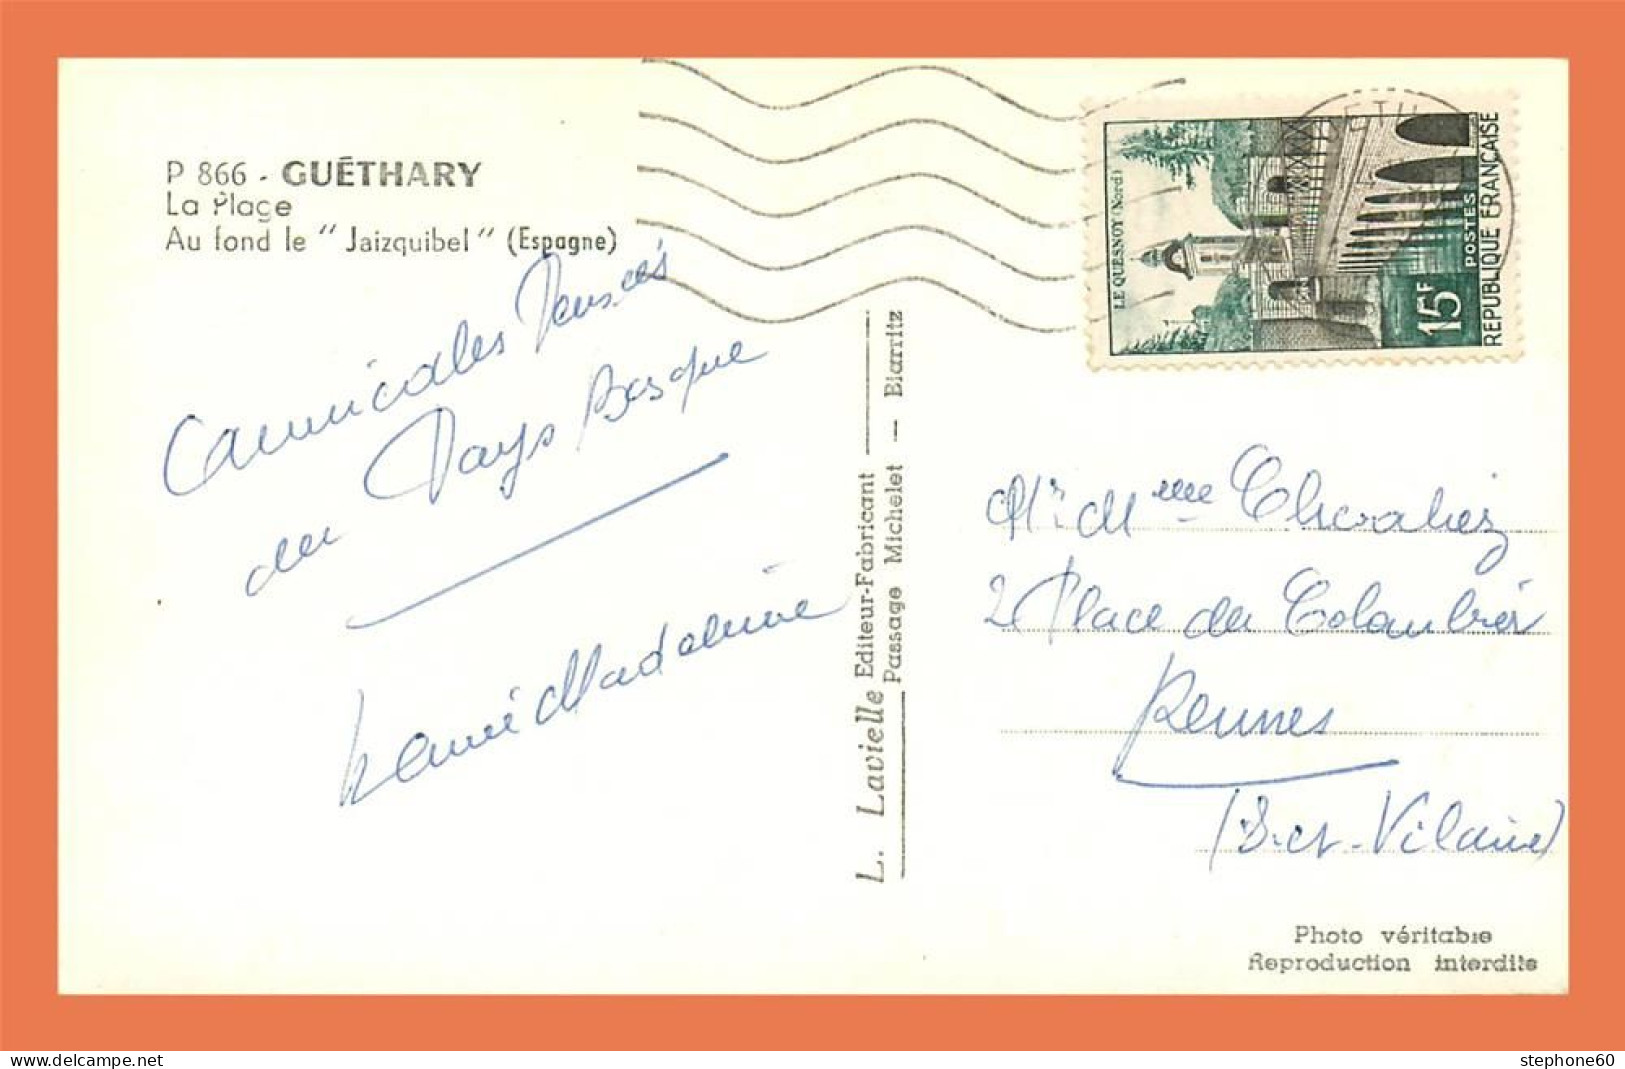 P 866 - GUÉTHARY
La Plage
Au fond le "Jaizquibel" (Espagne)
Amicales Pensées
du Pays Basque
Madeleine
L. Lavielle Editeur-Fabricant
Passage Michelet — Biarritz
LE QUESNOY (Nord)
15F
POSTES
REPUBLIQUE FRANÇAISE
Mr Mme Chevalier
2 Place du Colombier
Rennes
(I.et-Vilaine)
Photo véritable
Reproduction interdite
stephone60